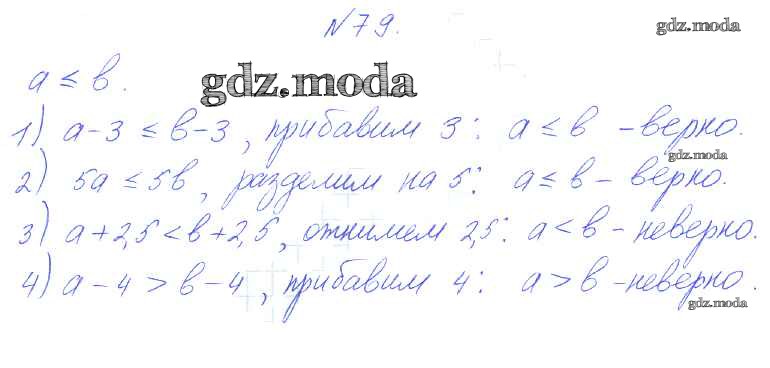 №79. gdz.moda
a ≤ в. gdz.moda
1) a-3 ≤ в-3, прибавим 3: a ≤ в - верно.
gdz.moda
2) 5a ≤ 5в, разделим на 5: a ≤ в - верно.
3) a+2,5 < в+2,5, отнимем 2,5: a < в - неверно.
4) a-4 > в-4, прибавим 4: a > в - неверно.
gdz.moda